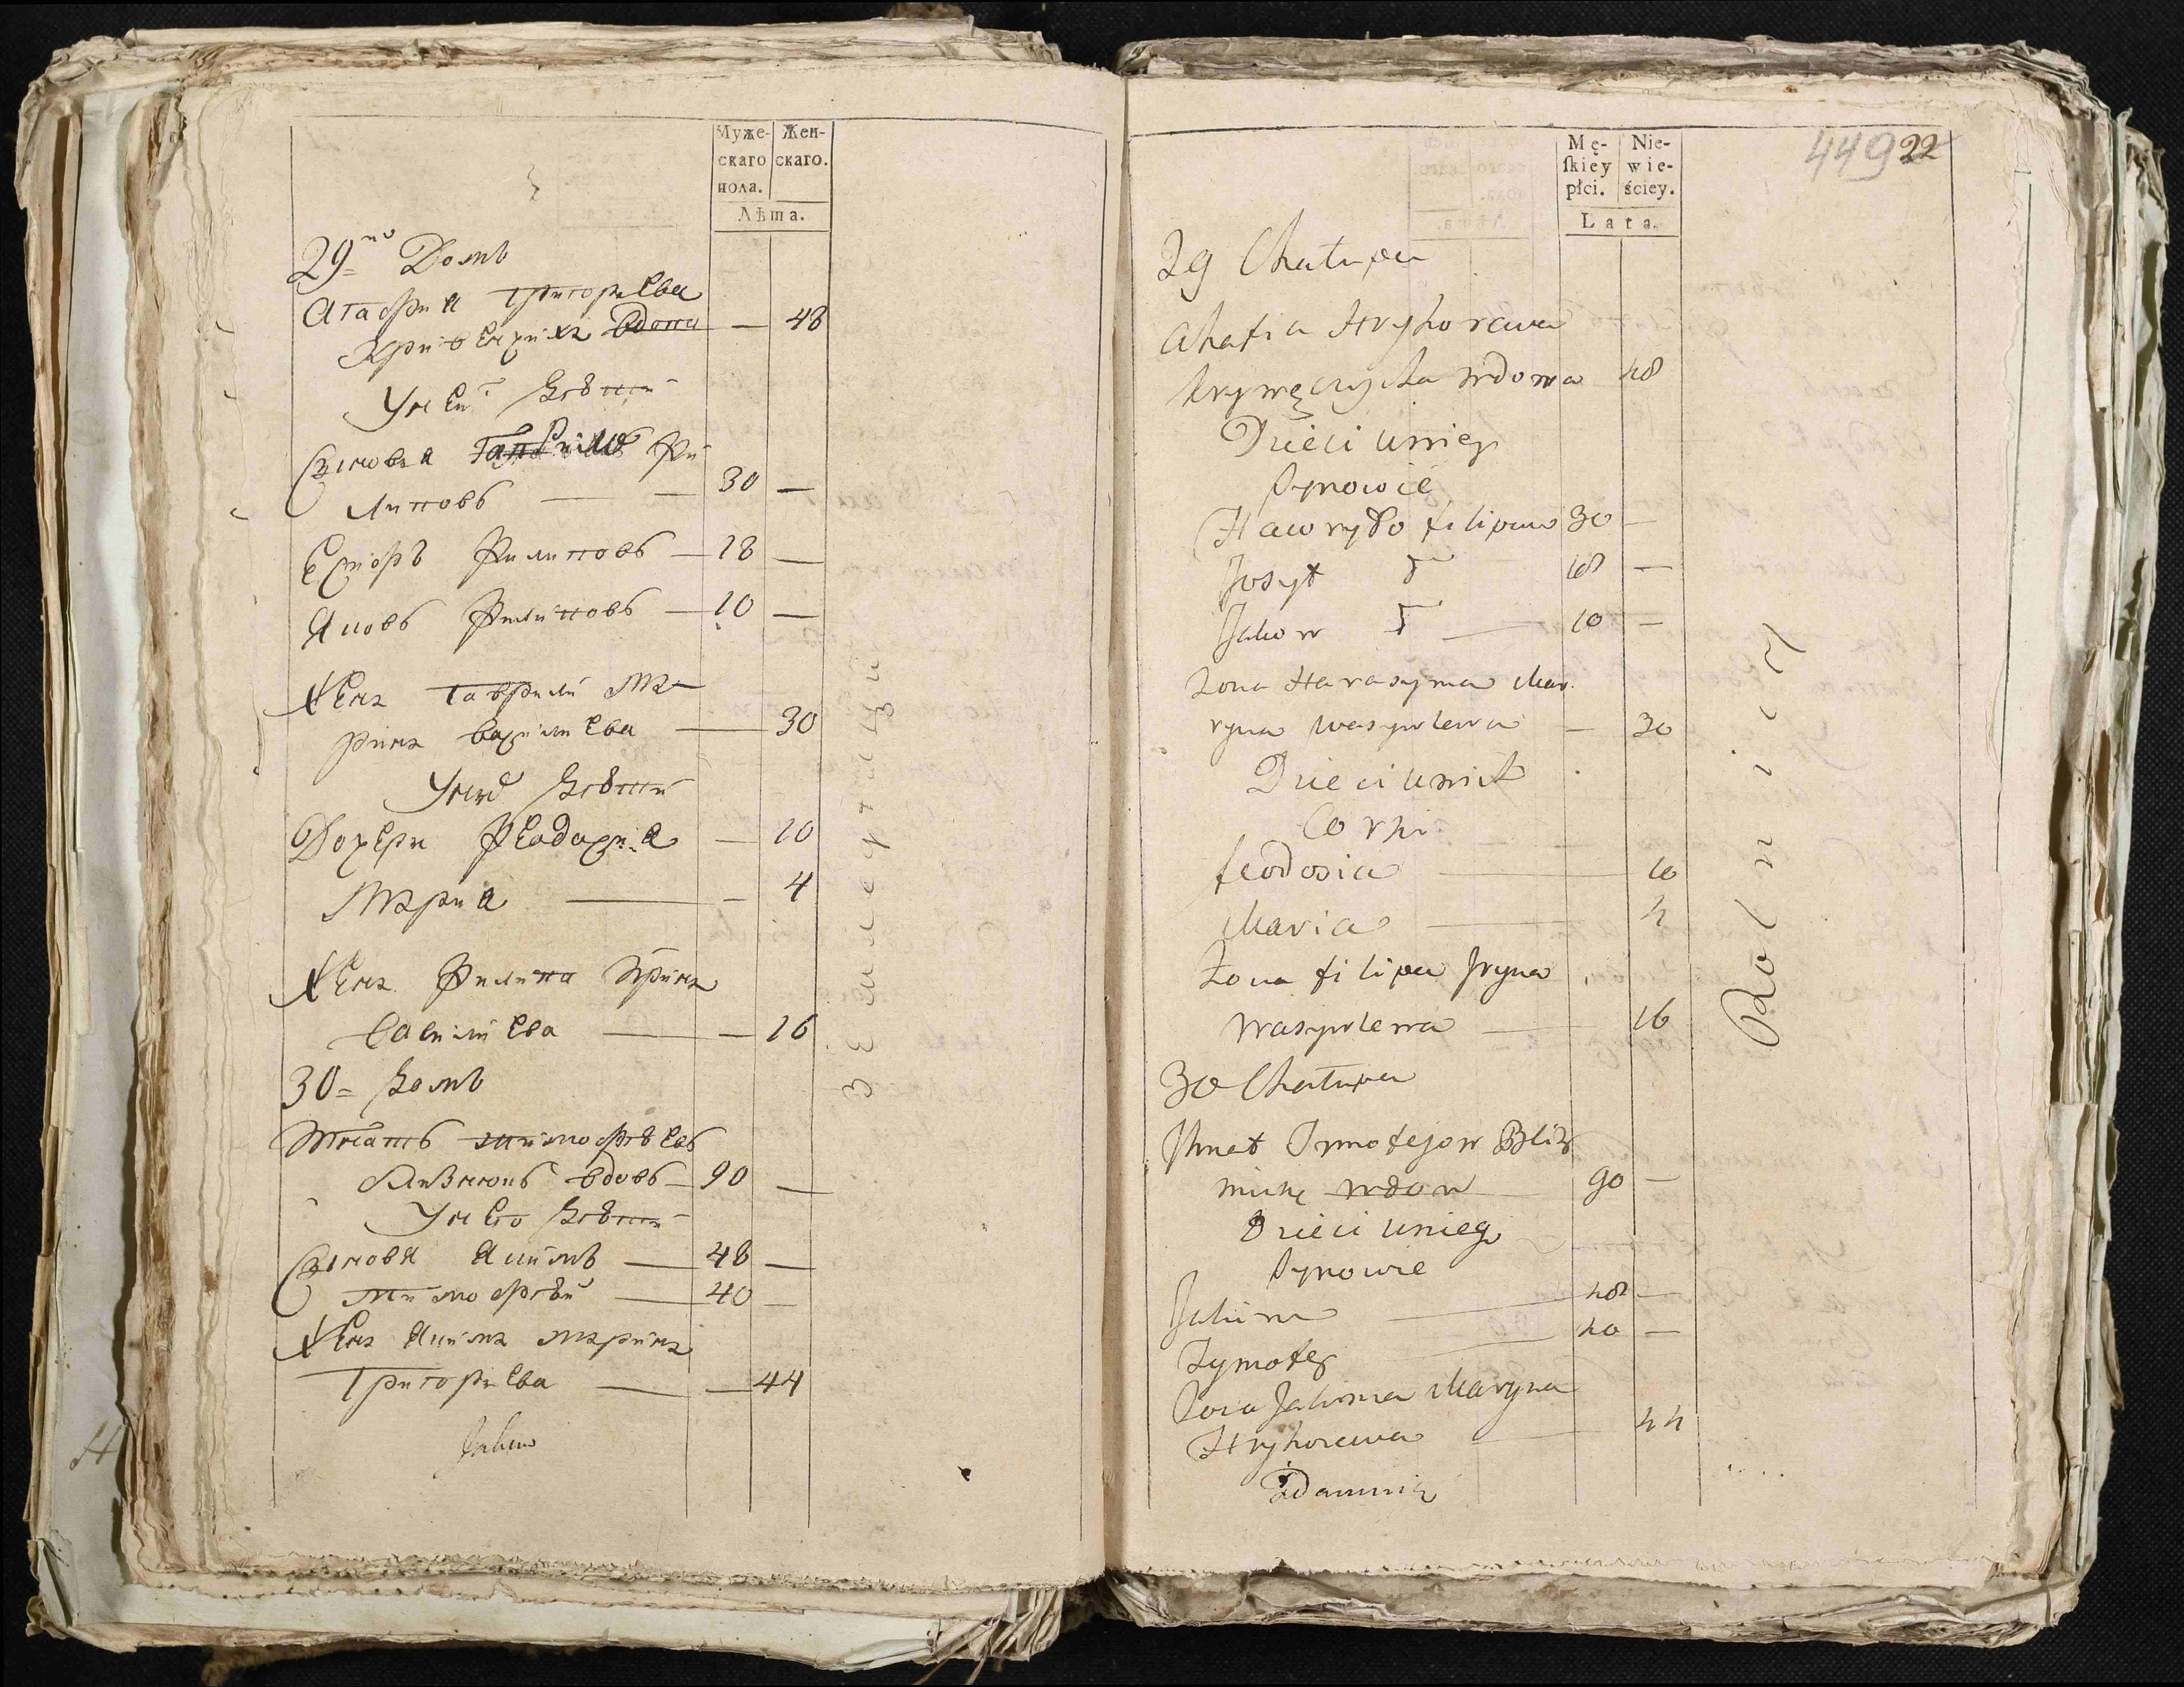 Муже- Жен-
скаго скаго.
пола.
Лѣта.
29го Домъ
Агафия григориева
Кривенчиха вдова — 48
У неи дѣтии
Сынови Гаврило Фи
липовъ — 30 —
Есиоръ Филиповъ — 18 —
Яковъ Филиповъ — 10 —
Жена Гаврили Ма
рина василиева — 30
У нихъ дѣтии
Дочери Феодосия — 10
Мария — 4
Жена Филипа Ирина
василиева — 16
30 = домъ
Игнатъ тимофѣевъ
вдовъ — 90 —
У него дѣтии
Сыновя Якимъ — 48 —
тимофѣи — 40 —
Жена Якима марина
Григориева — 44
Земледѣлцы
Mę- Nie-
skiey wie-
płci. ściey.
Lata.
449 22
29 Chałupa
Ahafia Hryhorewa
krywęczycha wdowa 48
Dzieci uniey
synowie
Hawryło filipow 30 —
Josyf 18 —
Jakow 10 —
zona Harasyma Mar.
ryna wasywlewa — 30
Dzieci unich
Corki
feodosia 10
Maria 4
Zona filipa Jryna
wasywlewa 16
30 Chałupa
Jhnat Tymofejow Bliz
niuk wdow 90 —
Dzieci uniego
synowie
Jakim 48 —
Tymofey 40 —
Zona Jakima Maryna
Hryhorewa 44
Rolnicy